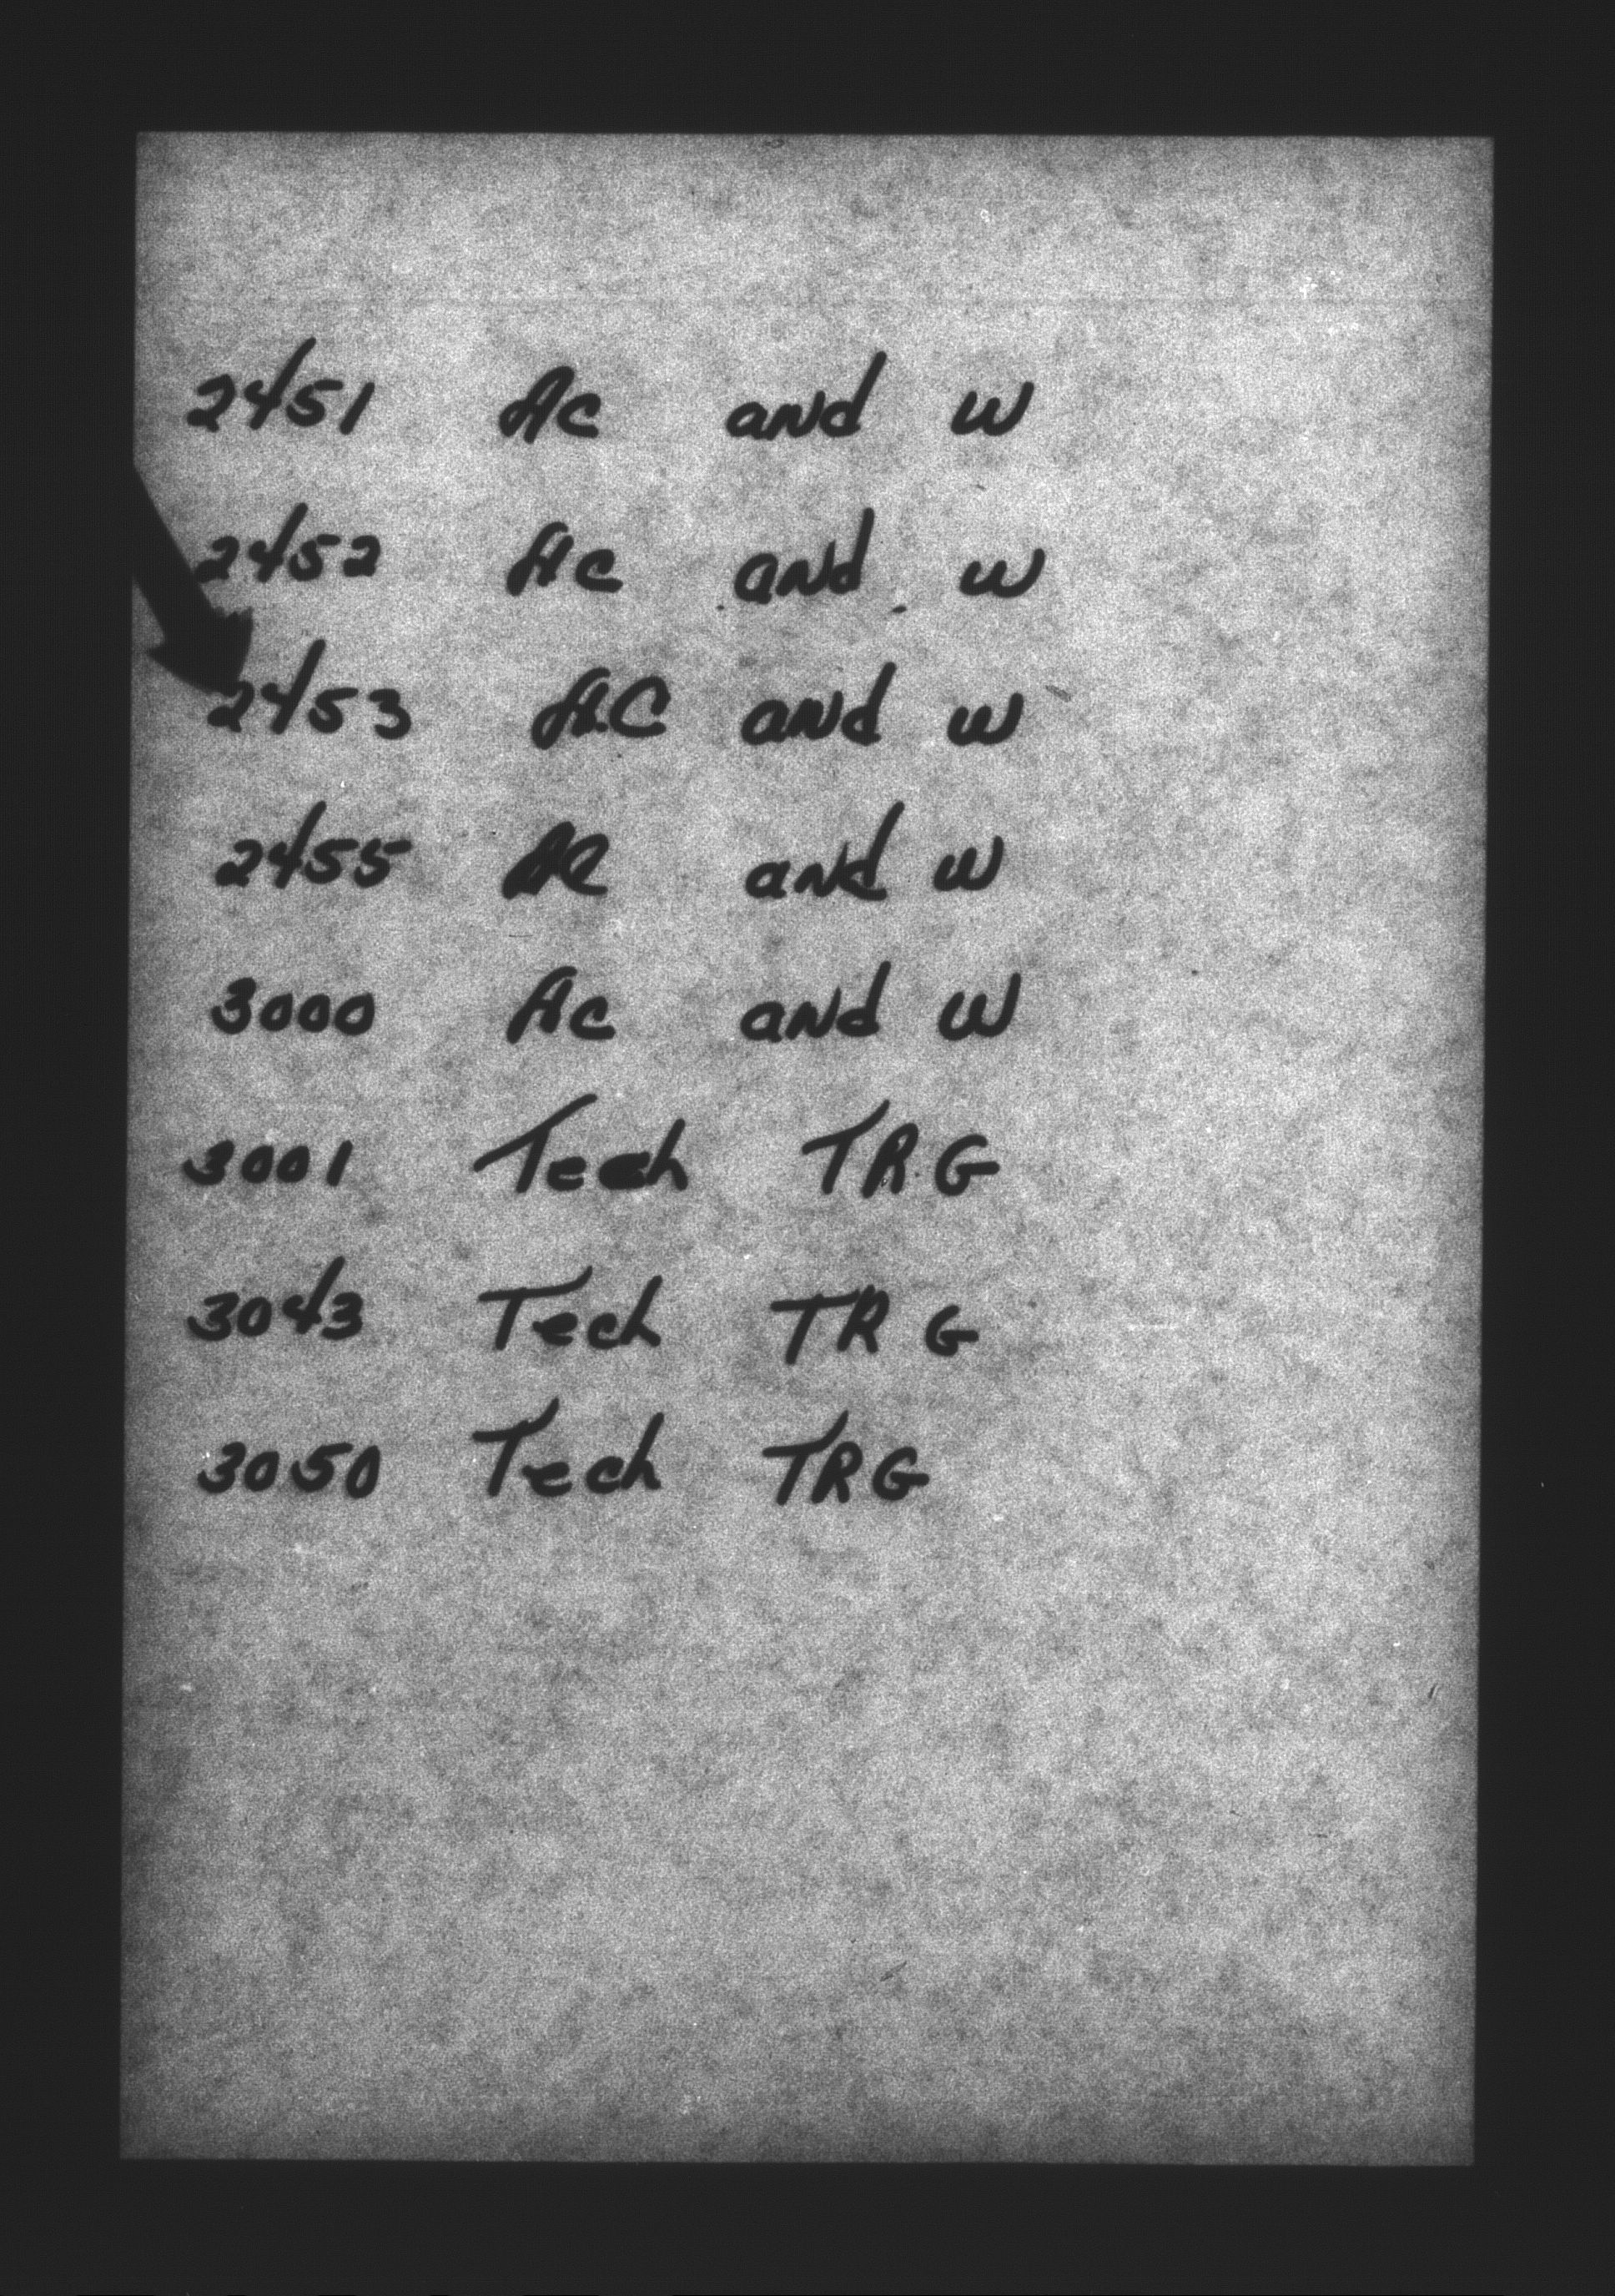 2451 Ac and w
2452 Ac and w
2453 A.C and w
2455 AC and w
3000 Ac and w
3001 Tech TR.G
3043 Tech TR G
3050 Tech TRG